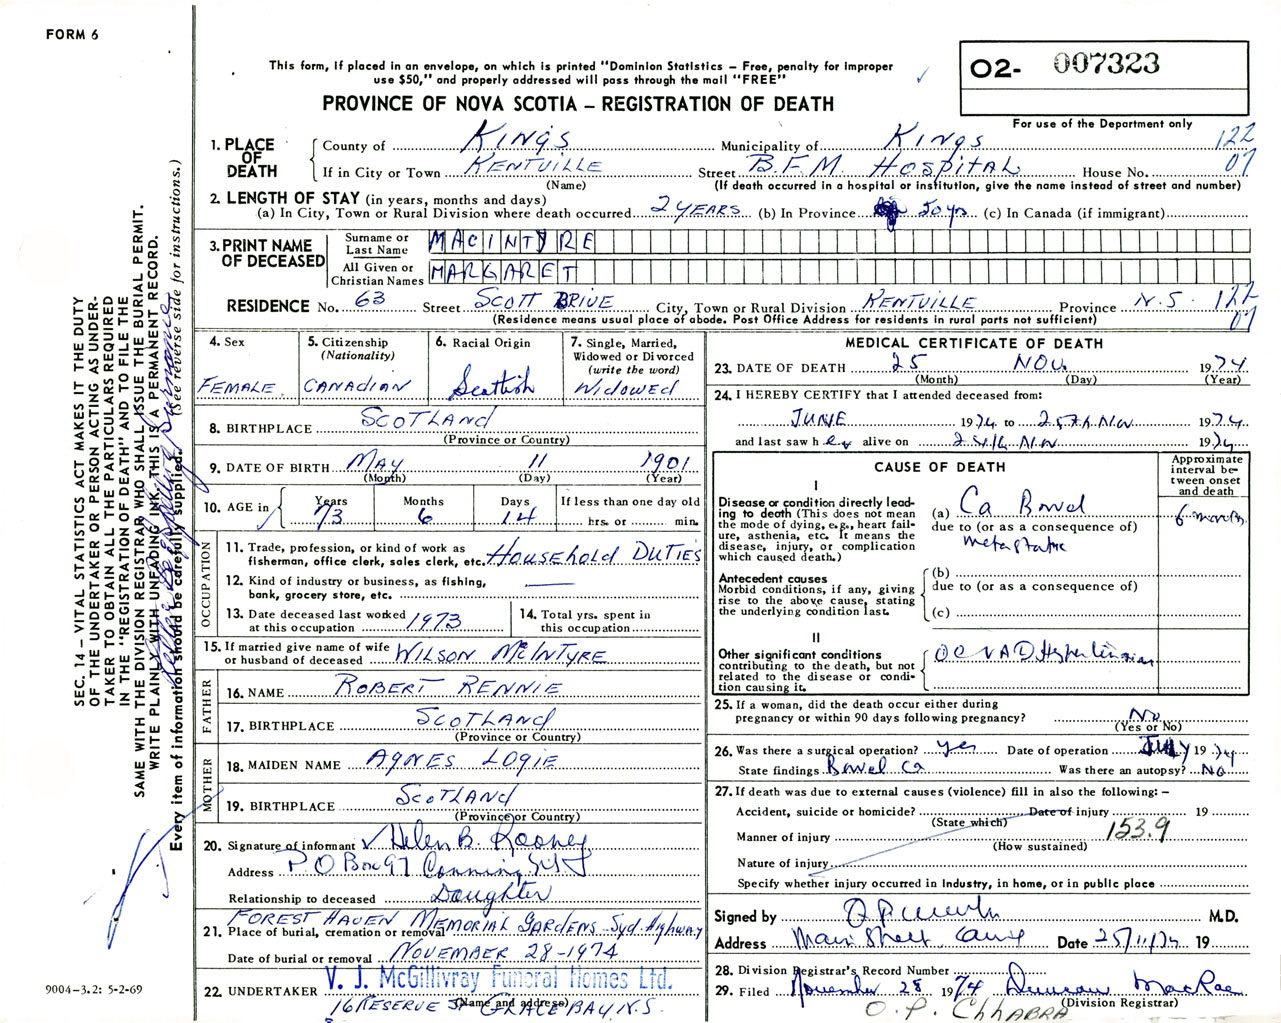 FORM 6
This form, if placed in an envelope, on which is printed "Dominion Statistics – Free, penalty for improper
use $50," and properly addressed will pass through the mail "FREE"
O2- 007323
PROVINCE OF NOVA SCOTIA – REGISTRATION OF DEATH
For use of the Department only
1. PLACE OF DEATH
County of KINGS Municipality of KINGS 122
If in City or Town KENTVILLE Street B.F.M. HOSPITAL House No. 07
(Name) (If death occurred in a hospital or institution, give the name instead of street and number)
2. LENGTH OF STAY (in years, months and days)
(a) In City, Town or Rural Division where death occurred 2 YEARS (b) In Province 50 yrs (c) In Canada (if immigrant)
3. PRINT NAME OF DECEASED
Surname or Last Name MACINTYRE
All Given or Christian Names MARGARET
RESIDENCE No. 63 Street SCOTT DRIVE City, Town or Rural Division KENTVILLE Province N.S. 122
(Residence means usual place of abode. Post Office Address for residents in rural parts not sufficient) 07
4. Sex FEMALE
5. Citizenship (Nationality) CANADIAN
6. Racial Origin Scottish
7. Single, Married, Widowed or Divorced (write the word) WIDOWED
8. BIRTHPLACE SCOTLAND
(Province or Country)
9. DATE OF BIRTH MAY 11 1901
(Month) (Day) (Year)
10. AGE in Years 73 Months 6 Days 14 If less than one day old hrs. or min.
OCCUPATION
11. Trade, profession, or kind of work as
fisherman, office clerk, sales clerk, etc. HOUSEHOLD DUTIES
12. Kind of industry or business, as fishing,
bank, grocery store, etc.
13. Date deceased last worked
at this occupation 1973
14. Total yrs. spent in
this occupation
15. If married give name of wife
or husband of deceased WILSON McINTYRE
FATHER
16. NAME ROBERT RENNIE
17. BIRTHPLACE SCOTLAND
(Province or Country)
MOTHER
18. MAIDEN NAME AGNES LOGIE
19. BIRTHPLACE SCOTLAND
(Province or Country)
20. Signature of informant Helen B. Rooney
Address P.O Box 97 Canning N.S
Relationship to deceased Daughter
FOREST HAVEN MEMORIAL GARDENS Syd. Highway
21. Place of burial, cremation or removal
Date of burial or removal NOVEMBER 28-1974
22. UNDERTAKER V. J. McGillivray Funeral Homes Ltd.
(Name and address)
16 RESERVE ST GLACE BAY, N.S.
MEDICAL CERTIFICATE OF DEATH
23. DATE OF DEATH 25 NOV. 1974
(Month) (Day) (Year)
24. I HEREBY CERTIFY that I attended deceased from:
JUNE 1974 to 25th Nov 1974
and last saw her alive on 24th Nov 1974
CAUSE OF DEATH
Approximate interval between onset and death
I
Disease or condition directly leading to death (This does not mean the mode of dying, e.g., heart failure, asthenia, etc. It means the disease, injury, or complication which caused death.)
(a) Ca Bowel 6 months
due to (or as a consequence of)
metastatic
Antecedent causes
Morbid conditions, if any, giving rise to the above cause, stating the underlying condition last.
(b)
due to (or as a consequence of)
(c)
II
Other significant conditions
contributing to the death, but not related to the disease or condition causing it.
Hypertension
25. If a woman, did the death occur either during
pregnancy or within 90 days following pregnancy? No
(Yes or No)
26. Was there a surgical operation? yes Date of operation JULY 1974
State findings Bowel Ca Was there an autopsy? NO
27. If death was due to external causes (violence) fill in also the following: –
Accident, suicide or homicide? Date of injury 19
(State which)
Manner of injury 153.9
(How sustained)
Nature of injury
Specify whether injury occurred in Industry, in home, or in public place
Signed by M.D.
Address Main Street, Date 25/11/74 19
28. Division Registrar's Record Number
29. Filed November 28 1974 Duncan MacRae
(Division Registrar)
O. P. CHHABRA
SEC. 14 – VITAL STATISTICS ACT MAKES IT THE DUTY
OF THE UNDERTAKER OR PERSON ACTING AS UNDER-
TAKER TO OBTAIN ALL THE PARTICULARS REQUIRED
IN THE "REGISTRATION OF DEATH" AND TO FILE THE
SAME WITH THE DIVISION REGISTRAR WHO SHALL ISSUE THE BURIAL PERMIT.
WRITE PLAINLY WITH UNFADING INK. THIS IS A PERMANENT RECORD.
Every item of information should be carefully supplied. (See reverse side for instructions.)
9004-3.2: 5-2-69